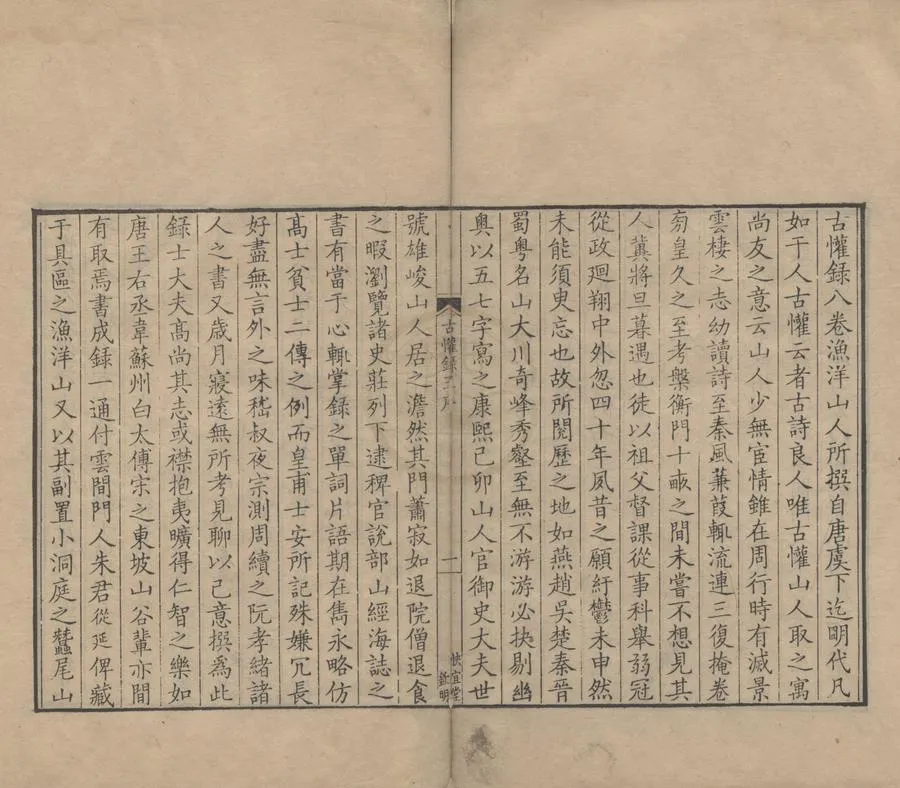 古懽録八卷漁洋山人所撰自唐虞下迄明代凡
如干人古懽云者古詩良人唯古懽山人取之寓
尚友之意云山人少無宦情雖在周行時有滅景
雲棲之志幼讀詩至秦風蒹葭輒流連三復掩卷
芴皇久之至考槃衡門十畝之間未嘗不想見其
人冀將旦暮遇也徒以祖父督課從事科舉弱冠
從政廻翔中外忽四十年夙昔之願紆鬱未申然
未能須臾忘也故所閱歷之地如燕趙吳楚秦晉
蜀粵名山大川奇峰秀壑至無不游游必抉剔幽
奧以五七字寫之康熙己卯山人官御史大夫世
古懽録序 一 快宜堂
號雄峻山人居之澹然其門蕭寂如退院僧退食
之暇瀏覽諸史莊列下逮稗官說部山經海誌之
書有當于心輒掌録之單詞片語期在雋永略仿
高士貧士二傳之例而皇甫士安所記殊嫌冗長
好盡無言外之味嵇叔夜宗測周續之阮孝緒諸
人之書又歲月寢遠無所考見聊以己意撰爲此
録士大夫高尚其志或襟抱夷曠得仁智之樂如
唐王右丞韋蘇州白太傅宋之東坡山谷輩亦間
有取焉書成録一通付雲間門人朱君從延俾藏
于具區之漁洋山又以其副置小洞庭之蠶尾山